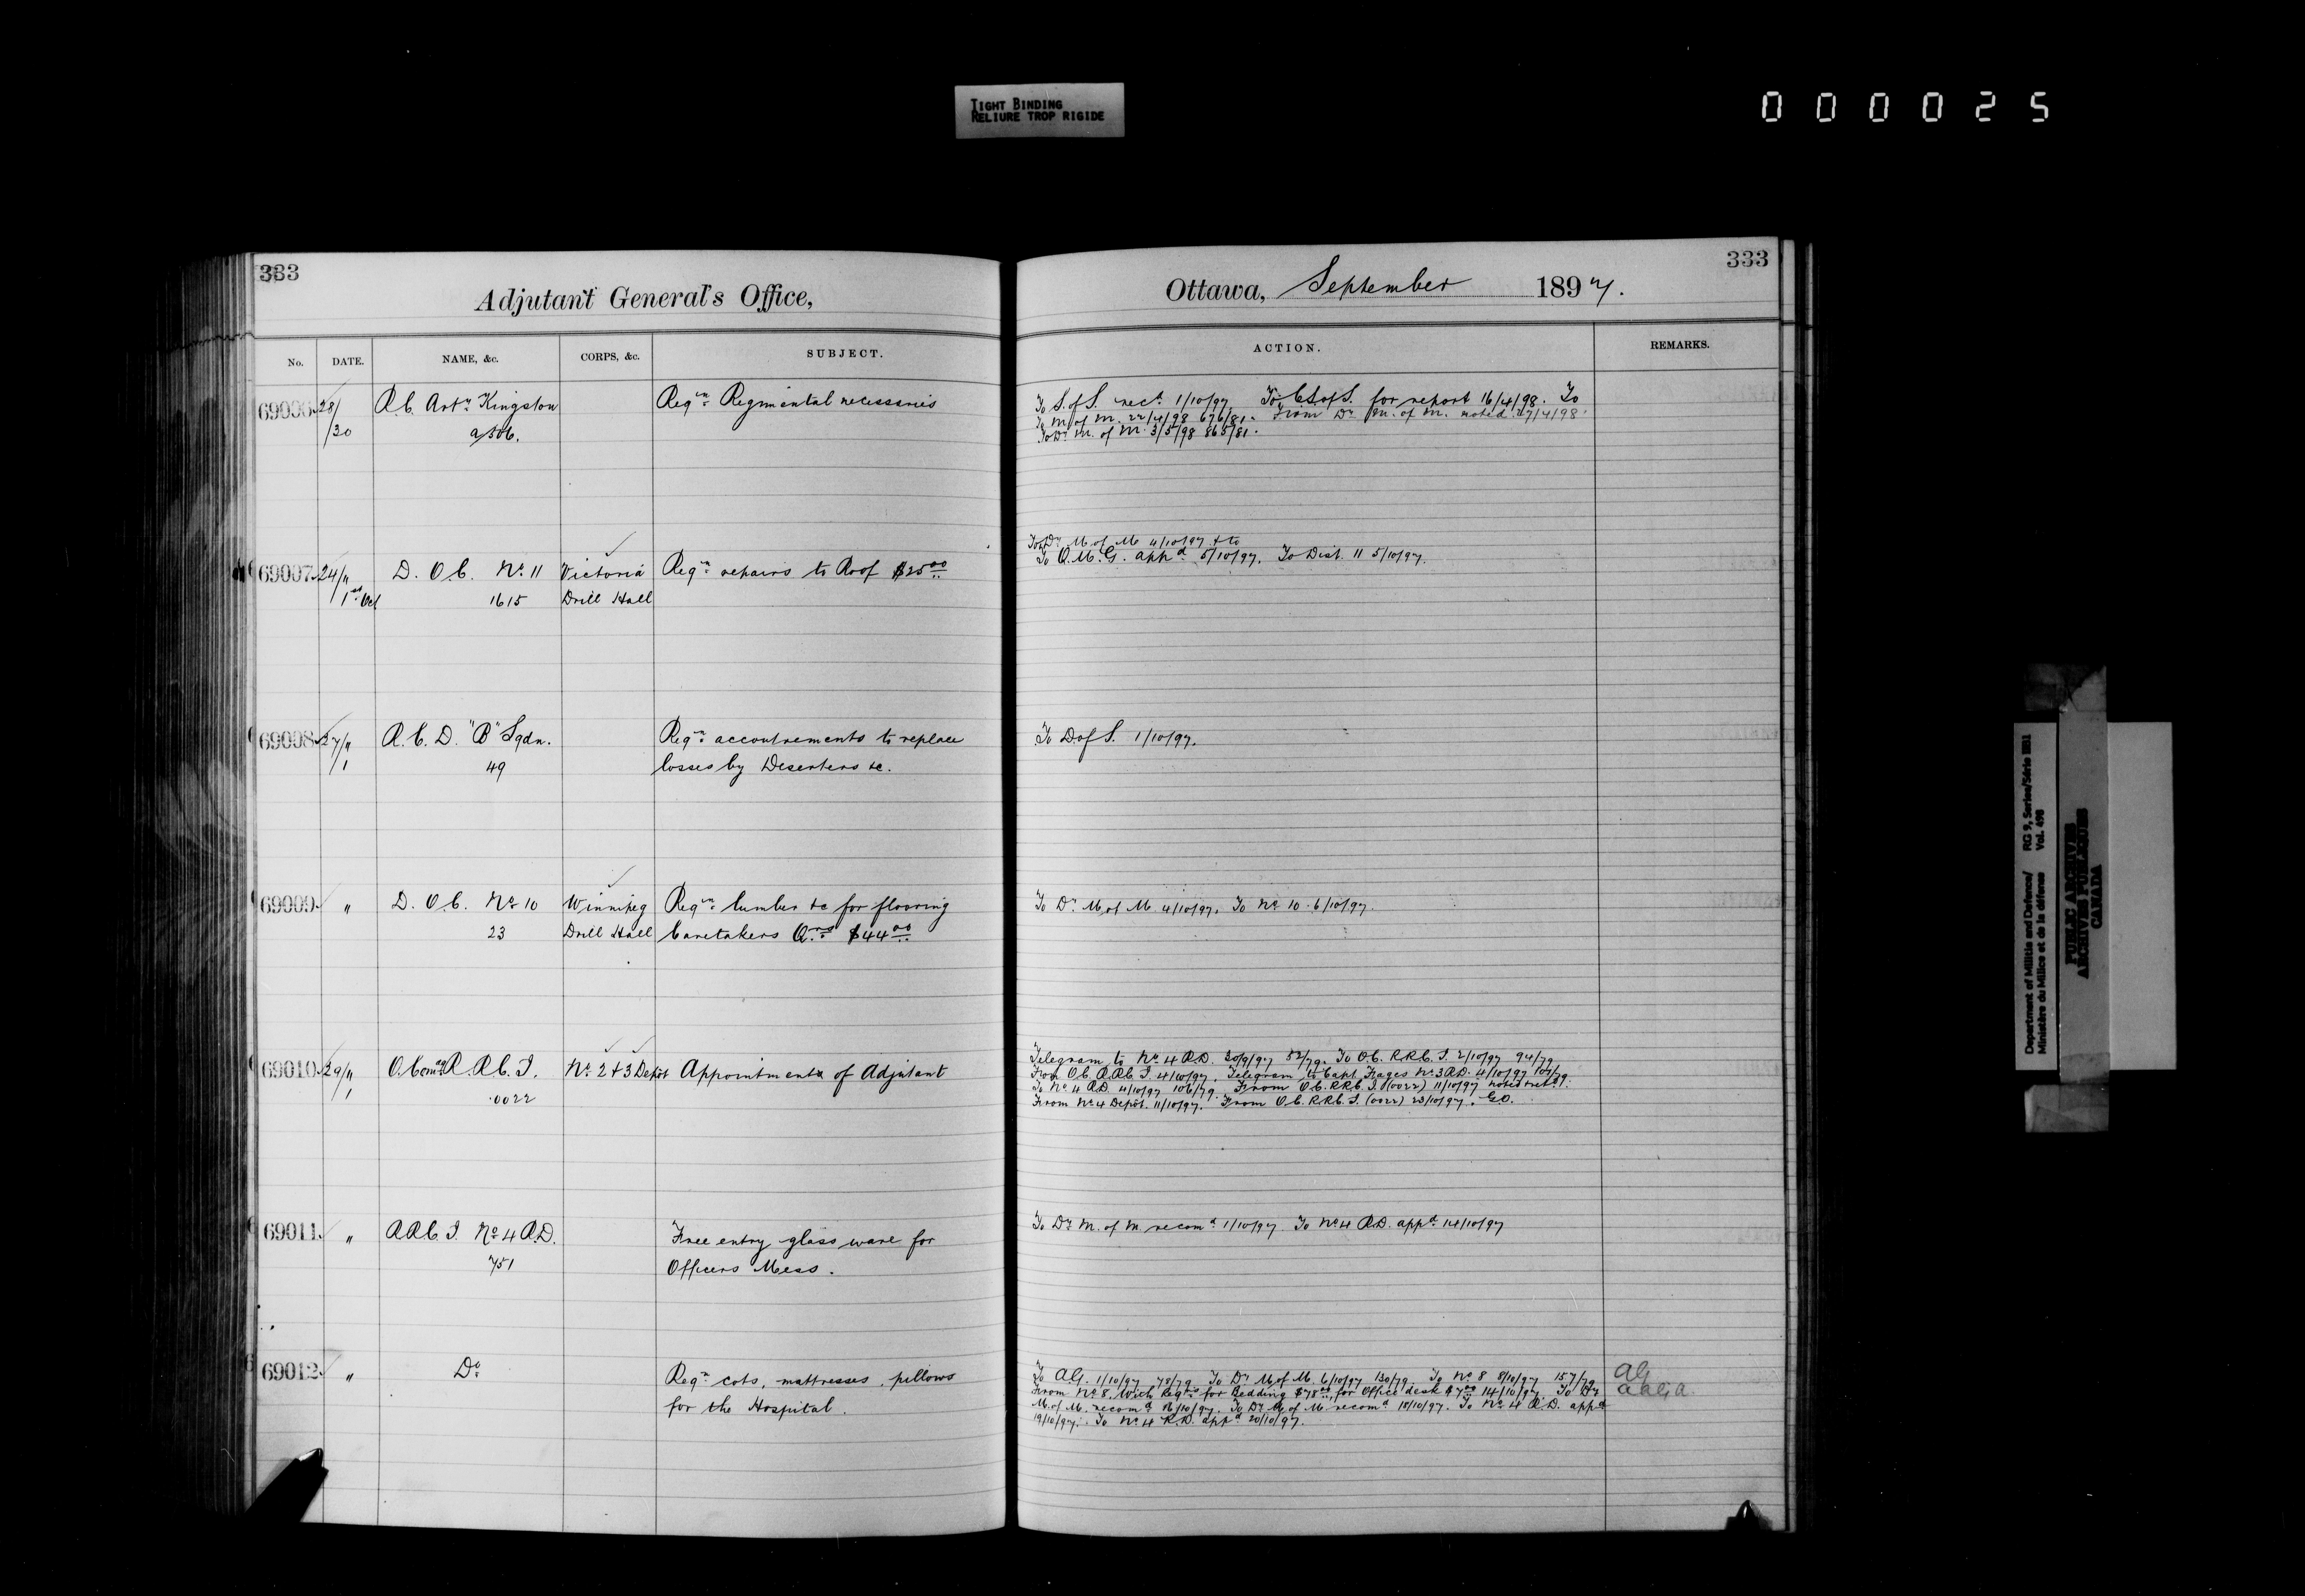 TIGHT BINDING
RELIURE TROP RIGIDE
000025
333
Adjutant General's Office,
No. DATE. NAME, &c. CORPS, &c. SUBJECT.
69006 28/ R.C. Arty Kingston Reqn Regimental necessaries
/30 a506.
69007 24/" D. O.C. No 11 Victoria Reqn repairs to Roof $25.00
1st Oct 1615 Drill Hall
69008 27/" R.C.D. "B" Sqdn. Reqn accoutrements to replace
/1 49 losses by Deserters &c.
69009 " D. O.C. No 10 Winnipeg Reqn lumber &c for flooring
23 Drill Hall Caretakers Qrs $44.00
69010 29/" O.Comdg R.R.C.I. No 2 & 3 Depot Appointments of Adjutant
/1 0022
69011 " RRC.I. No 4 R.D. Free entry glass ware for
751 Officers Mess.
69012 " Do Reqn cots, mattresses, pillows
for the Hospital.
333
Ottawa, September 1897.
ACTION. REMARKS.
To S. of S. 1/10/97 To C.S. of S. for report 16/4/98. To
M. of M. 22/4/98 676/81. From Dr M. of M. noted 27/4/98.
To Dr M. of M. 3/5/98 865/81.
To Dr M of M 4/10/97 & to
To Q.M.G. appd 5/10/97. To Dist. 11 5/10/97.
To D. of S. 1/10/97.
To Dr M of M 4/10/97. To No 10 6/10/97.
Telegram to No 4 R.D. 30/9/97 52/79. To O.C. R.R.C.I. 2/10/97 94/79
From O.C. R.R.C.I. 4/10/97. Telegram to Capt No 3 R.D. 4/10/97 107/79
To No 4 R.D. 4/10/97 106/79. From O.C. RRC.I. (0022) 11/10/97 noted
From No 4 Depot. 11/10/97. From O.C. R.R.C.I. (0022) 23/10/97. G.O.
To Dr M. of M. recomd 1/10/97. To No 4 R.D. appd 14/10/97
To A.G. 1/10/97 78/79 To Dr M of M. 6/10/97 130/79. To No 8 8/10/97 157/79 AG
From No 8. With Reqns for Bedding $78.00, for Office desk $7.00 14/10/97. To Dr
M. of M. recomd /10/97. To Dr M of M recomd 18/10/97. To No 4 R.D. appd
19/10/97. To No 4 R.D. appd 20/10/97.
Department of Militia and Defence/
Ministère du Milice et de la défense
RG 9, Series/Série IIB1
Vol. 498
PUBLIC ARCHIVES
ARCHIVES PUBLIQUES
CANADA